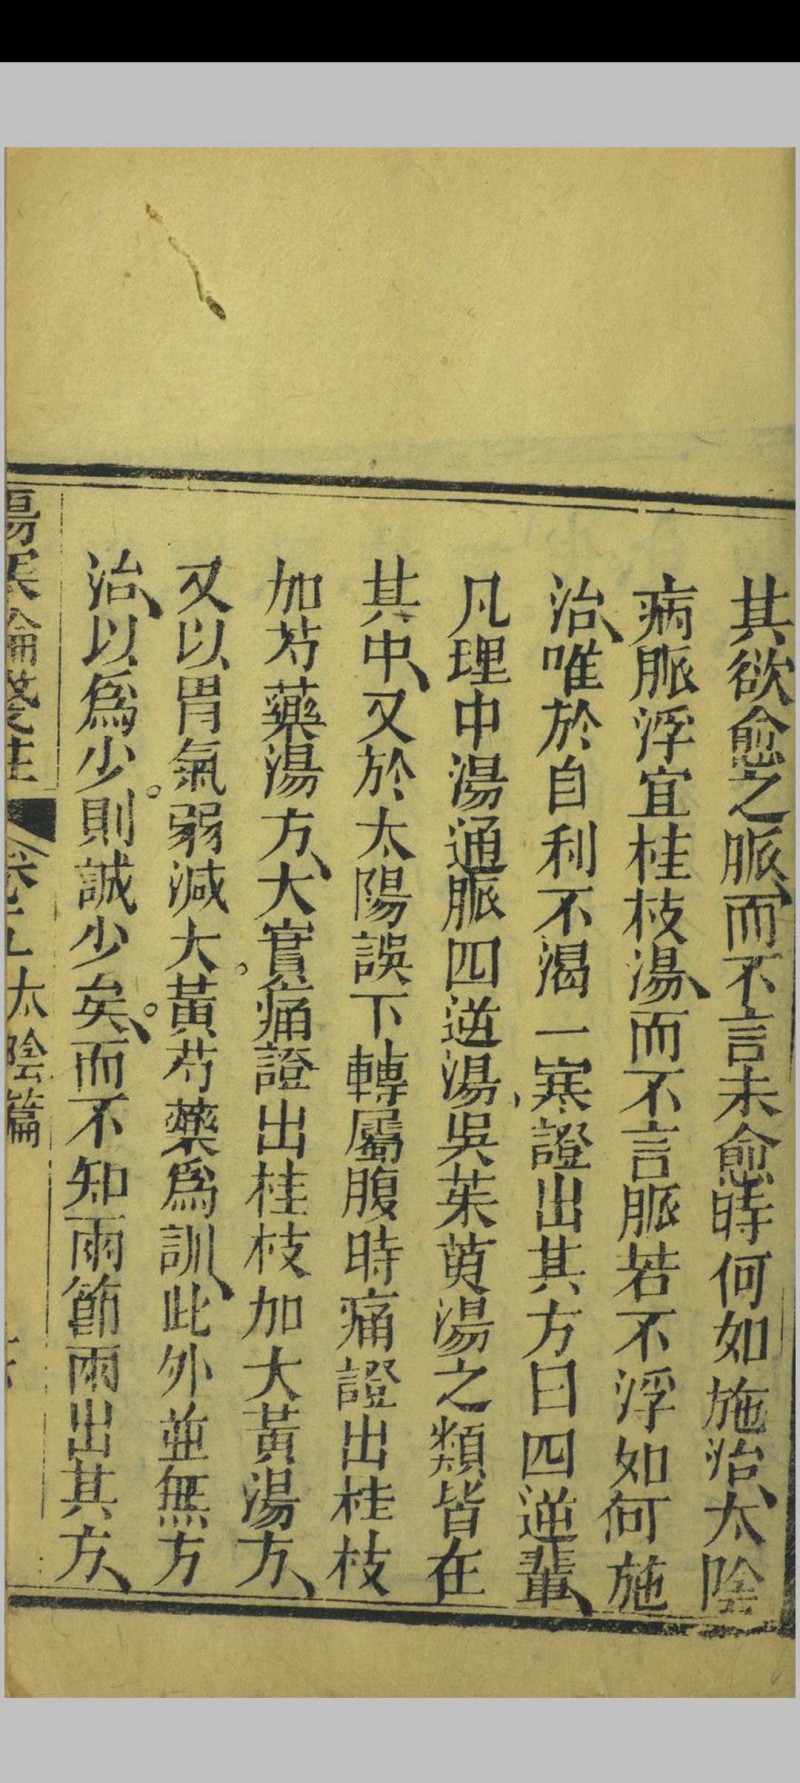 其欲愈之脈、而不言未愈時何如施治、太陰
病脈浮宜桂枝湯、而不言脈若不浮如何施
治、唯於自利不渴一寒證出其方曰四逆輩、
凡理中湯通脈四逆湯、吳茱萸湯之類皆在
其中、又於太陽誤下轉屬腹時痛證出桂枝
加芍藥湯方、大實痛證出桂枝加大黃湯方、
又以胃氣弱減大黃芍藥爲訓、此外並無方
治、以爲少。則誠少矣、而不知兩節兩出其方、
傷寒論
太陰篇